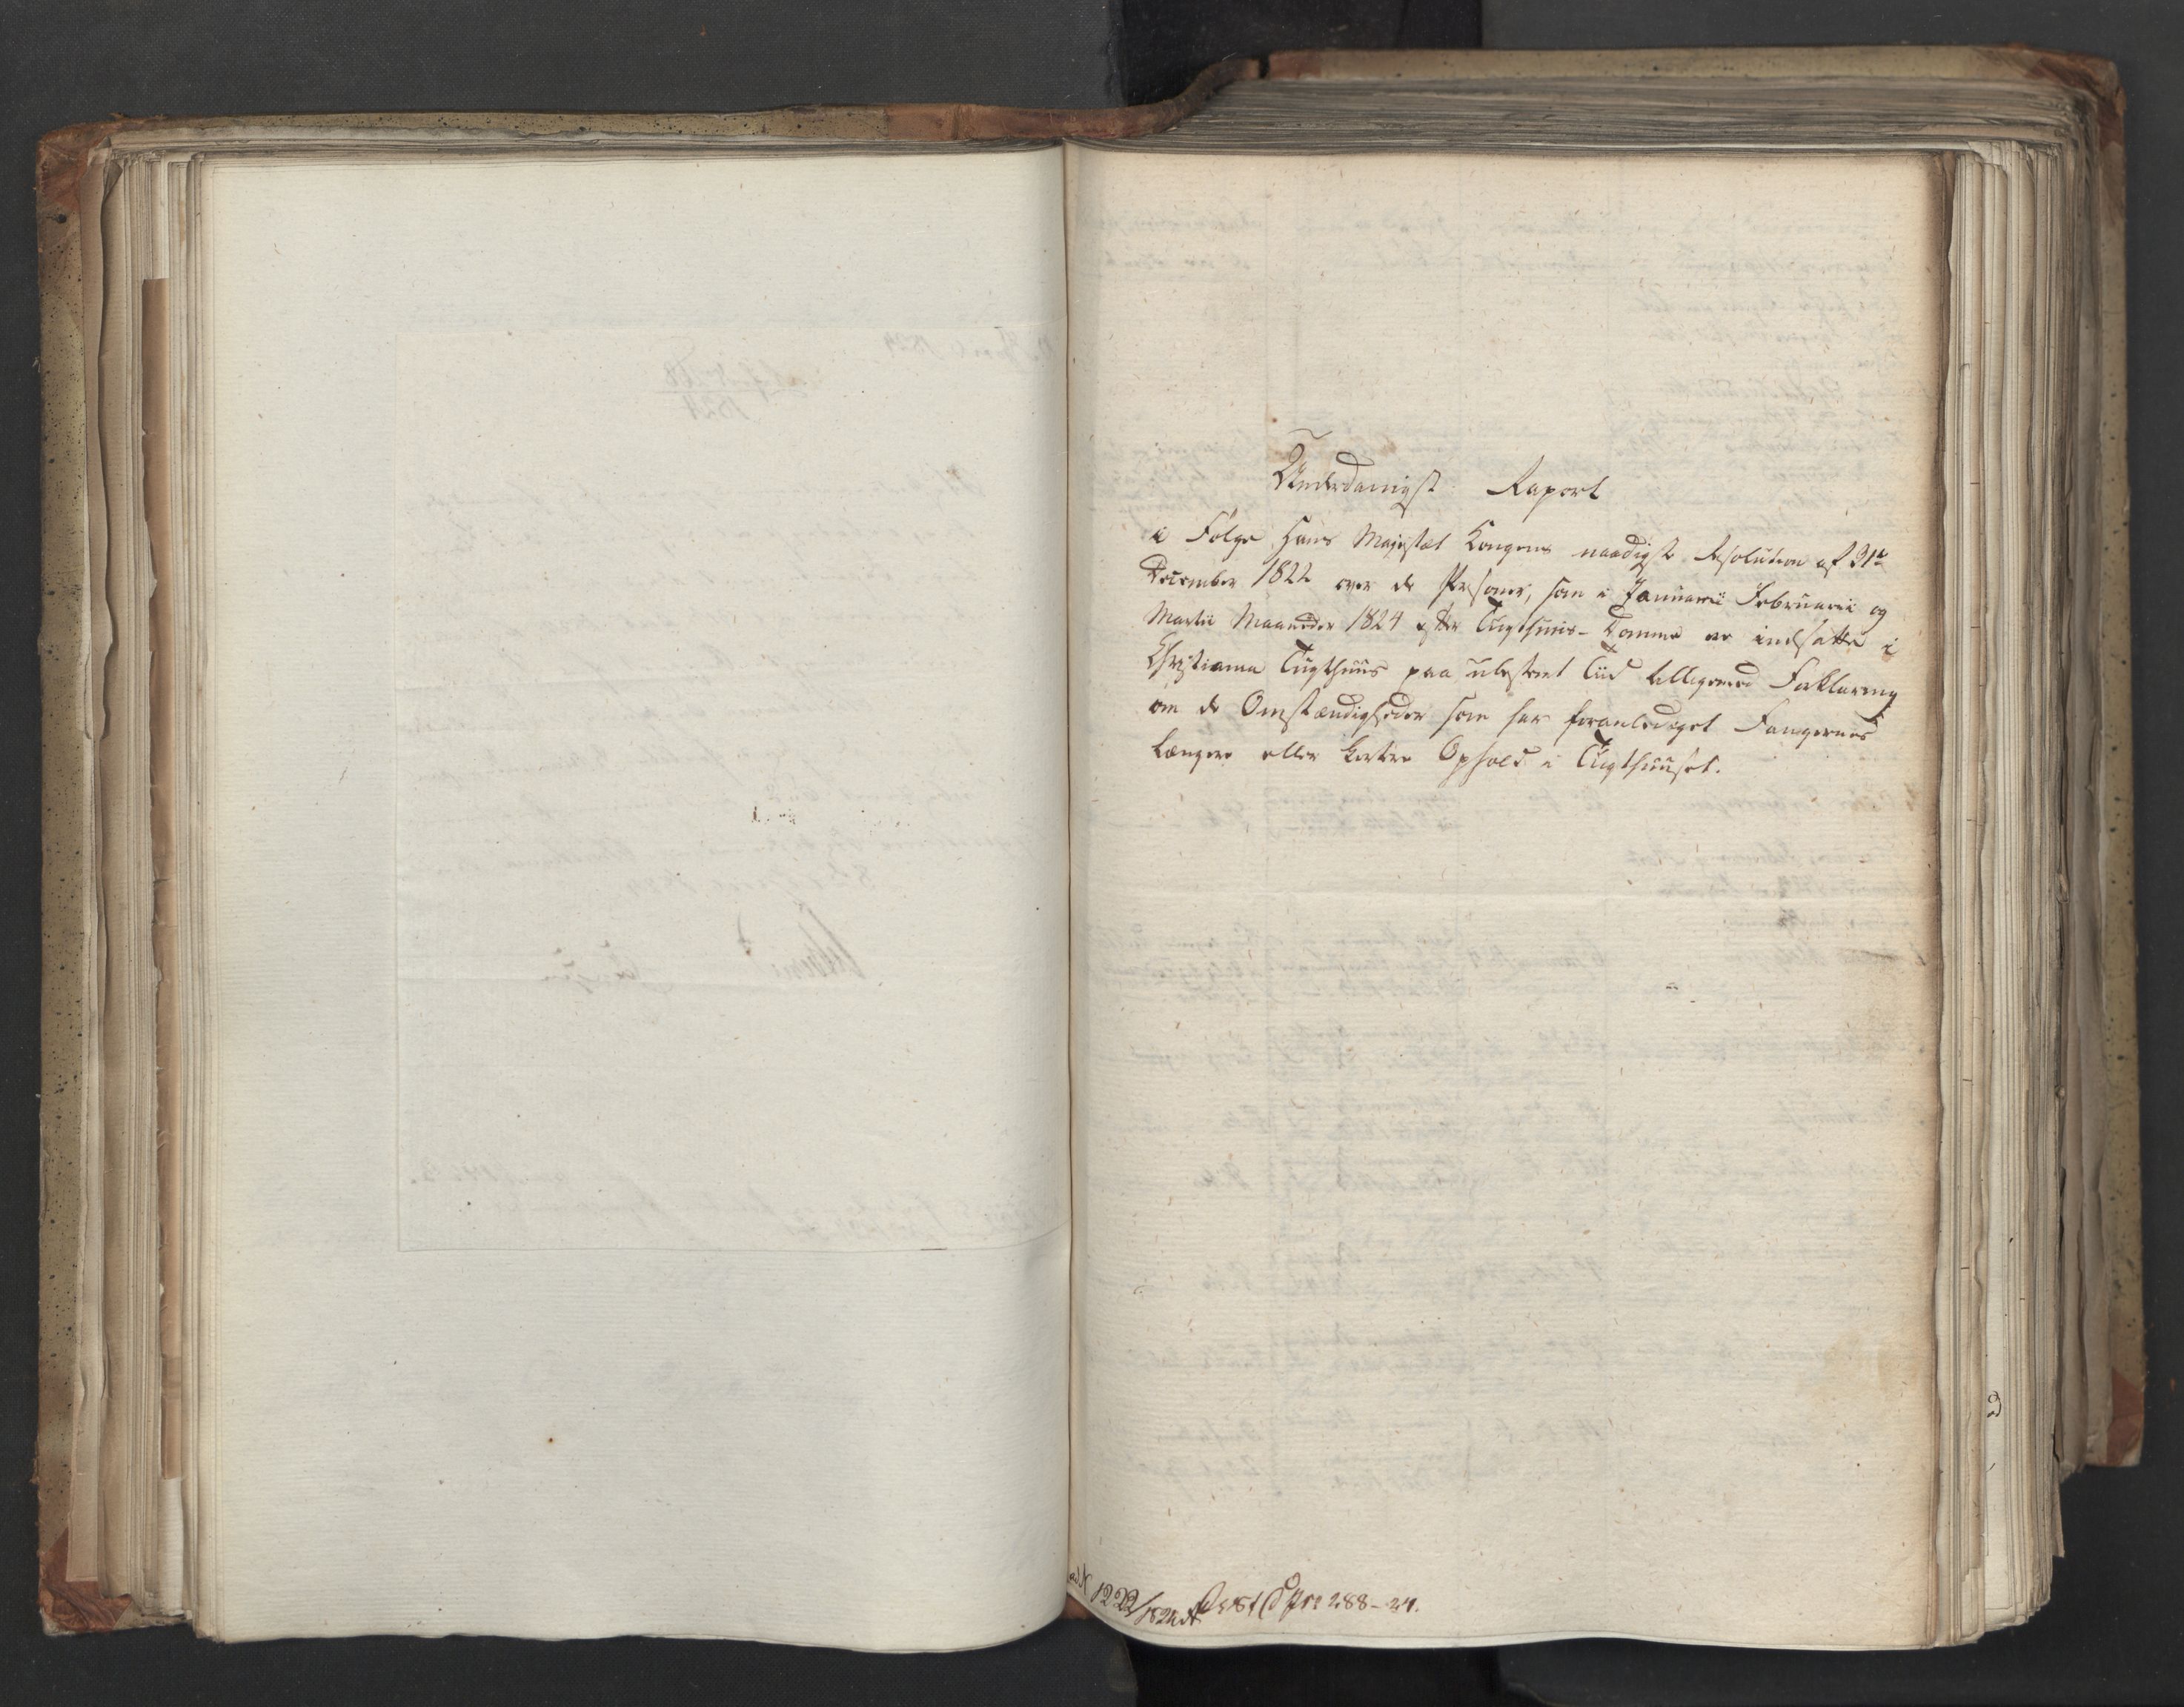 Underdanigst Raport
i Følge Hans Majestæt Kongens naadigste Resolution af 31te
December 1822 over de Personer, som i Januarii Februarii og
Martii Maaneder 1824 efter Tugthuus-Domme ere indsatte i
Christiania Tugthuus paa ubestemt Tiid tilligemed Forklaring
om de Omstændigheder som har foranlediget Fangernes
længere eller kortere Ophold i Tugthuuset.
1222/1824 A
288-24.